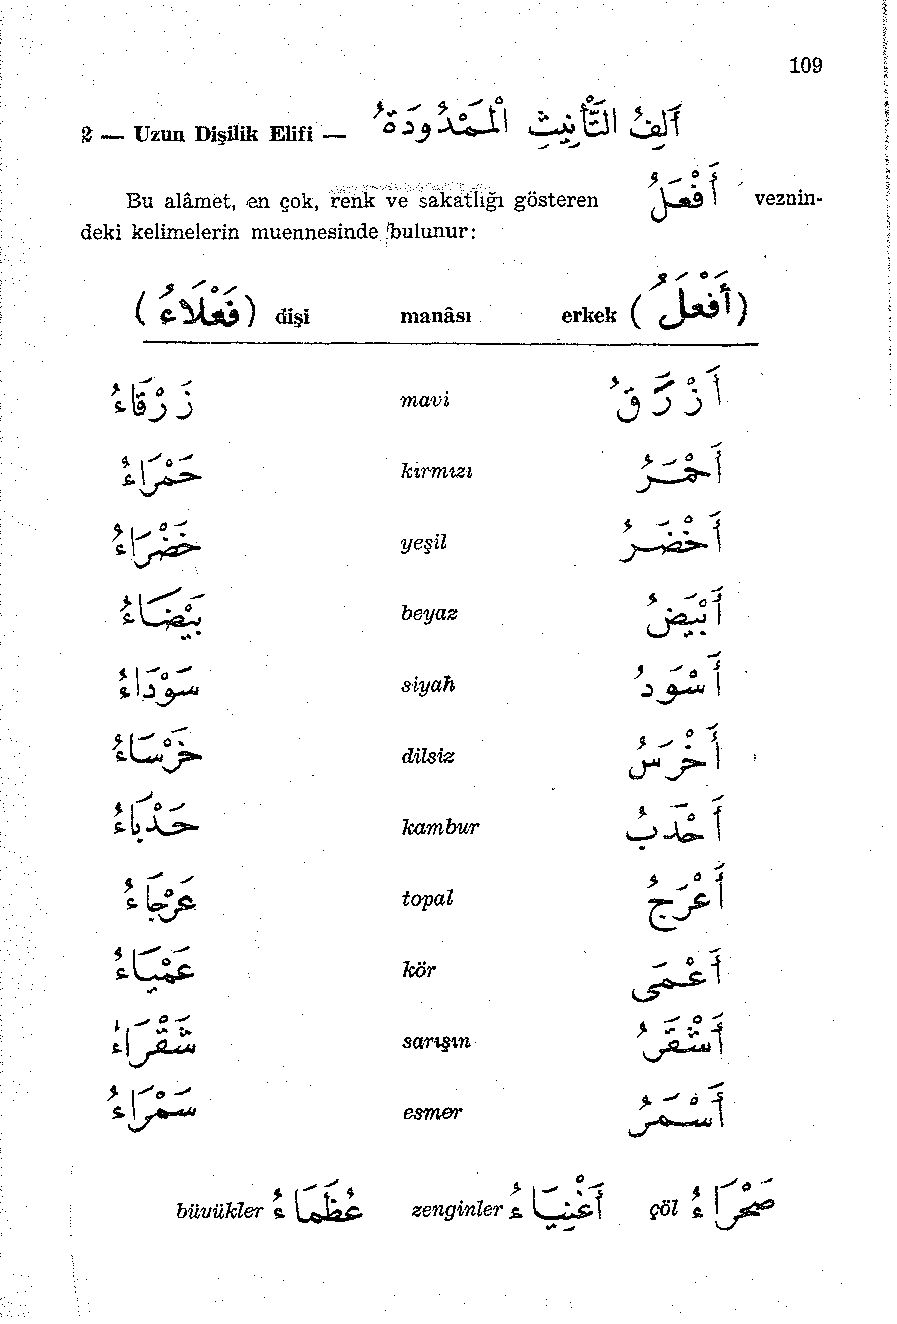 109
2 — Uzun Dişilik Elifi — أَلِفُ التَّأْنِيثِ الْمَمْدُودَةُ
Bu alâmet, en çok, renk ve sakatlığı gösteren أَفْعَلُ veznin-
deki kelimelerin muennesinde bulunur:
(فَعْلَاءُ) dişi manâsı erkek (أَفْعَلُ)
زَرْقَاءُ mavi أَزْرَقُ
حَمْرَاءُ kırmızı أَحْمَرُ
خَضْرَاءُ yeşil أَخْضَرُ
بَيْضَاءُ beyaz أَبْيَضُ
سَوْدَاءُ siyah أَسْوَدُ
خَرْسَاءُ dilsiz أَخْرَسُ
حَدْبَاءُ kambur أَحْدَبُ
عَرْجَاءُ topal أَعْرَجُ
عَمْيَاءُ kör أَعْمَى
شَقْرَاءُ sarışın أَشْقَرُ
سَمْرَاءُ esmer أَسْمَرُ
büyükler عُظَمَاءُ zenginler أَغْنِيَاءُ çöl صَحْرَاءُ